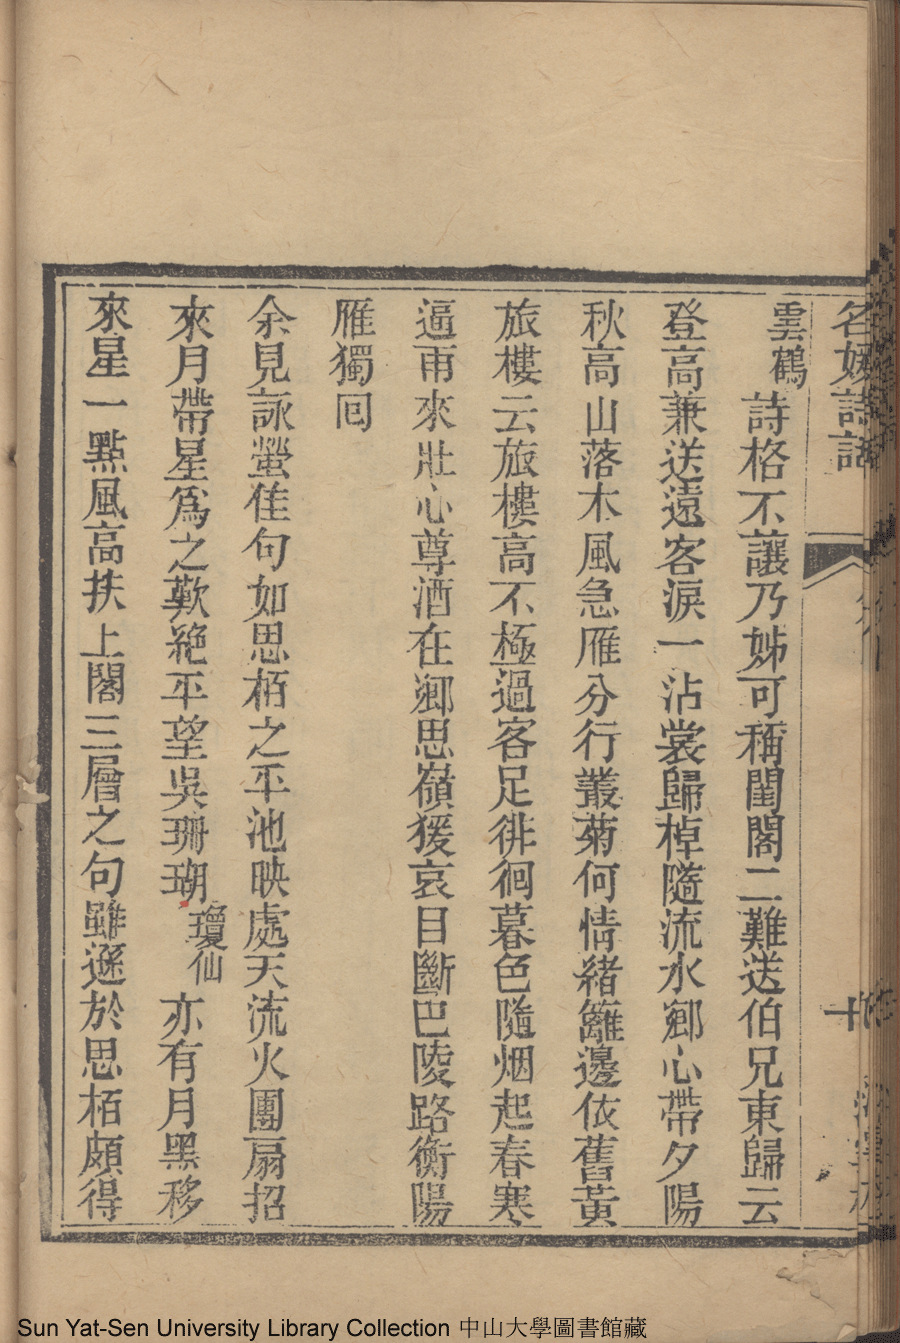 名媛詩話
十
雲鶴詩格不讓乃姊可稱閨閣二難送伯兄東歸云
登高兼送遠客淚一沾裳歸棹隨流水鄉心帶夕陽
秋高山落木風急雁分行叢菊何情緒籬邊依舊黃
旅樓云旅樓高不極過客足徘徊暮色隨烟起春寒
逼雨來壯心尊酒在鄉思嶺猨哀目斷巴陵路衡陽
雁獨囘
余見詠螢佳句如思栢之平池映處天流火團扇招
來月帶星爲之歎絶平望吳珊瑚瓊仙亦有月黑移
來星一點風高扶上閣三層之句雖遜於思栢頗得
Sun Yat-Sen University Library Collection 中山大學圖書館藏